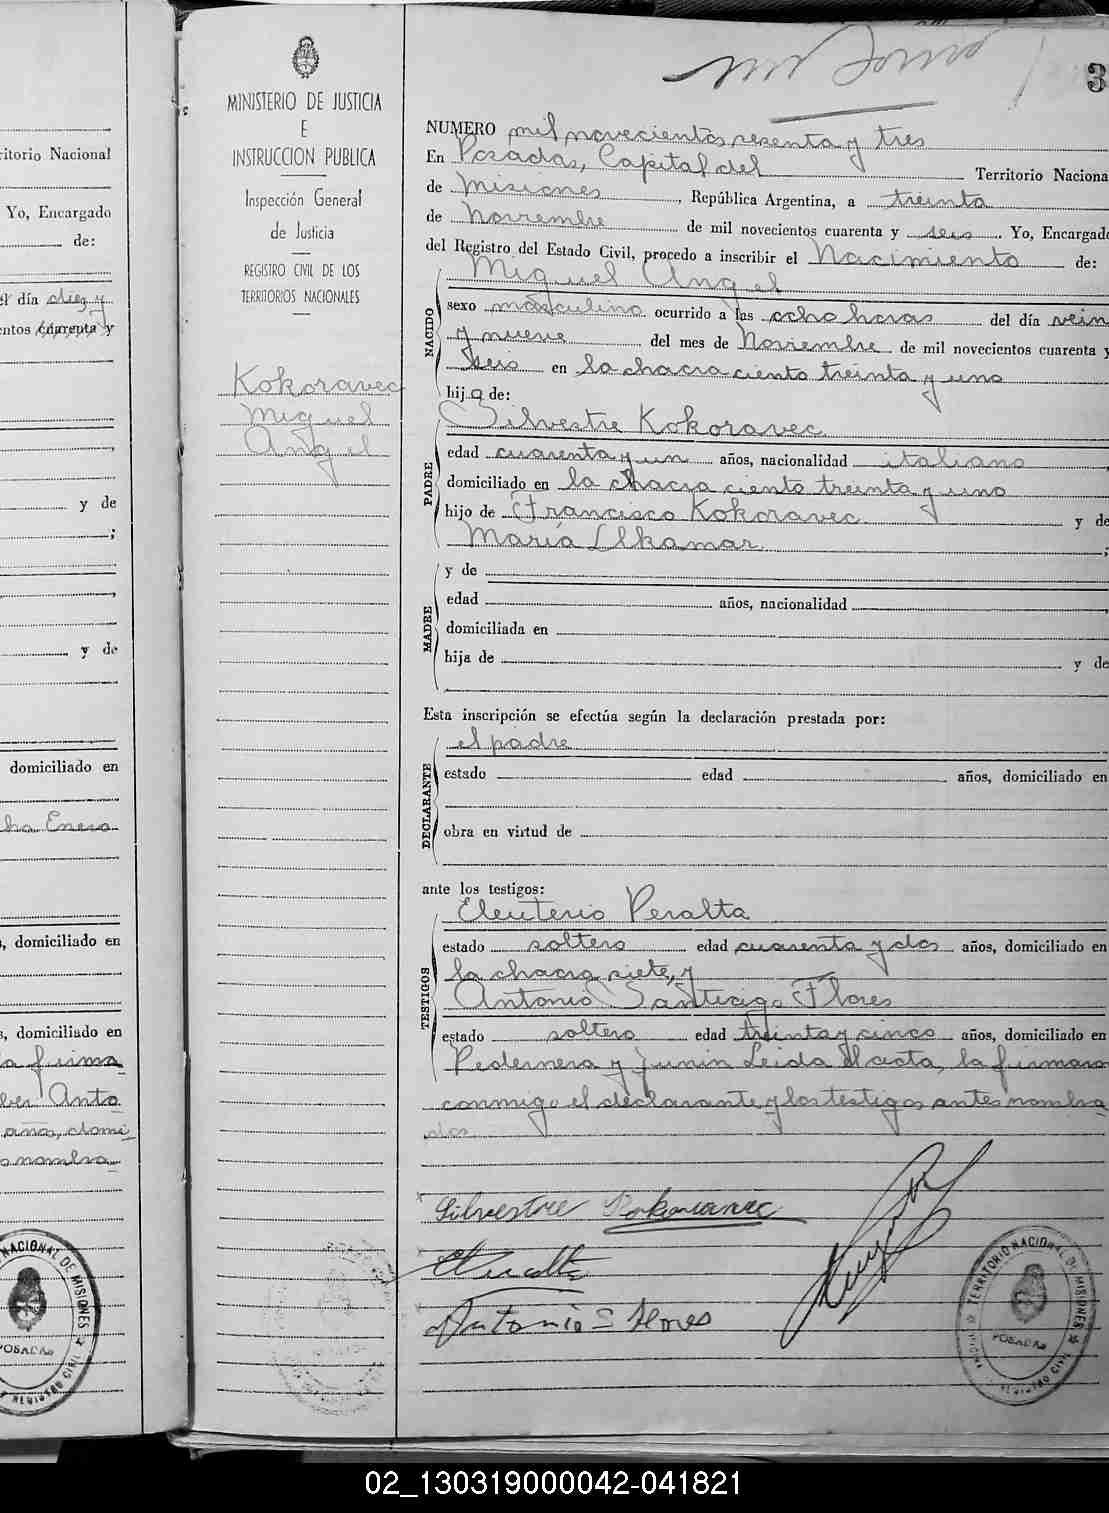 3
MINISTERIO DE JUSTICIA
E
INSTRUCCION PUBLICA
Inspección General
de Justicia
REGISTRO CIVIL DE LOS
TERRITORIOS NACIONALES
Kokoravec
Miguel
Angel
NUMERO mil novecientos sesenta y tres
En Posadas, Capital del Territorio Naciona
de Misiones, República Argentina, a treinta
de Noviembre de mil novecientos cuarenta y seis. Yo, Encargado
del Registro del Estado Civil, procedo a inscribir el Nacimiento de:
NACIDO
Miguel Angel
sexo masculino ocurrido a las ocho horas del día vein
y nueve del mes de Noviembre de mil novecientos cuarenta y
seis en la chacra ciento treinta y uno
hijo de:
PADRE
Silvestre Kokoravec
edad cuarenta y un años, nacionalidad italiano,
domiciliado en la chacra ciento treinta y uno
hijo de Francisco Kokoravec y de
María Ukamar;
MADRE
y de
edad años, nacionalidad,
domiciliada en
hija de y de
Esta inscripción se efectúa según la declaración prestada por:
DECLARANTE
el padre
estado edad años, domiciliado en
obra en virtud de
ante los testigos:
TESTIGOS
Eleuterio Peralta
estado soltero edad cuarenta y dos años, domiciliado en
la chacra siete, y
Antonio Santiago Flores
estado soltero edad treinta y cinco años, domiciliado en
Pedernera y Junin Leida el acta, la firmaron
conmigo el declarante y los testigos antes nombra
dos
Silvestre Kokoravec
Antonio S Flores
TERRITORIO NACIONAL DE MISIONES
POSADAS
REGISTRO CIVIL
ritorio Nacional
Yo, Encargado
de:
el día diez y
entos cuarenta y
y de
;
y de
domiciliado en
cha Enero
, domiciliado en
s, domiciliado en
a firma
Anto
años, domi
nombra
NACIONAL DE MISIONES
POSADAS
REGISTRO CIVIL
02_130319000042-041821